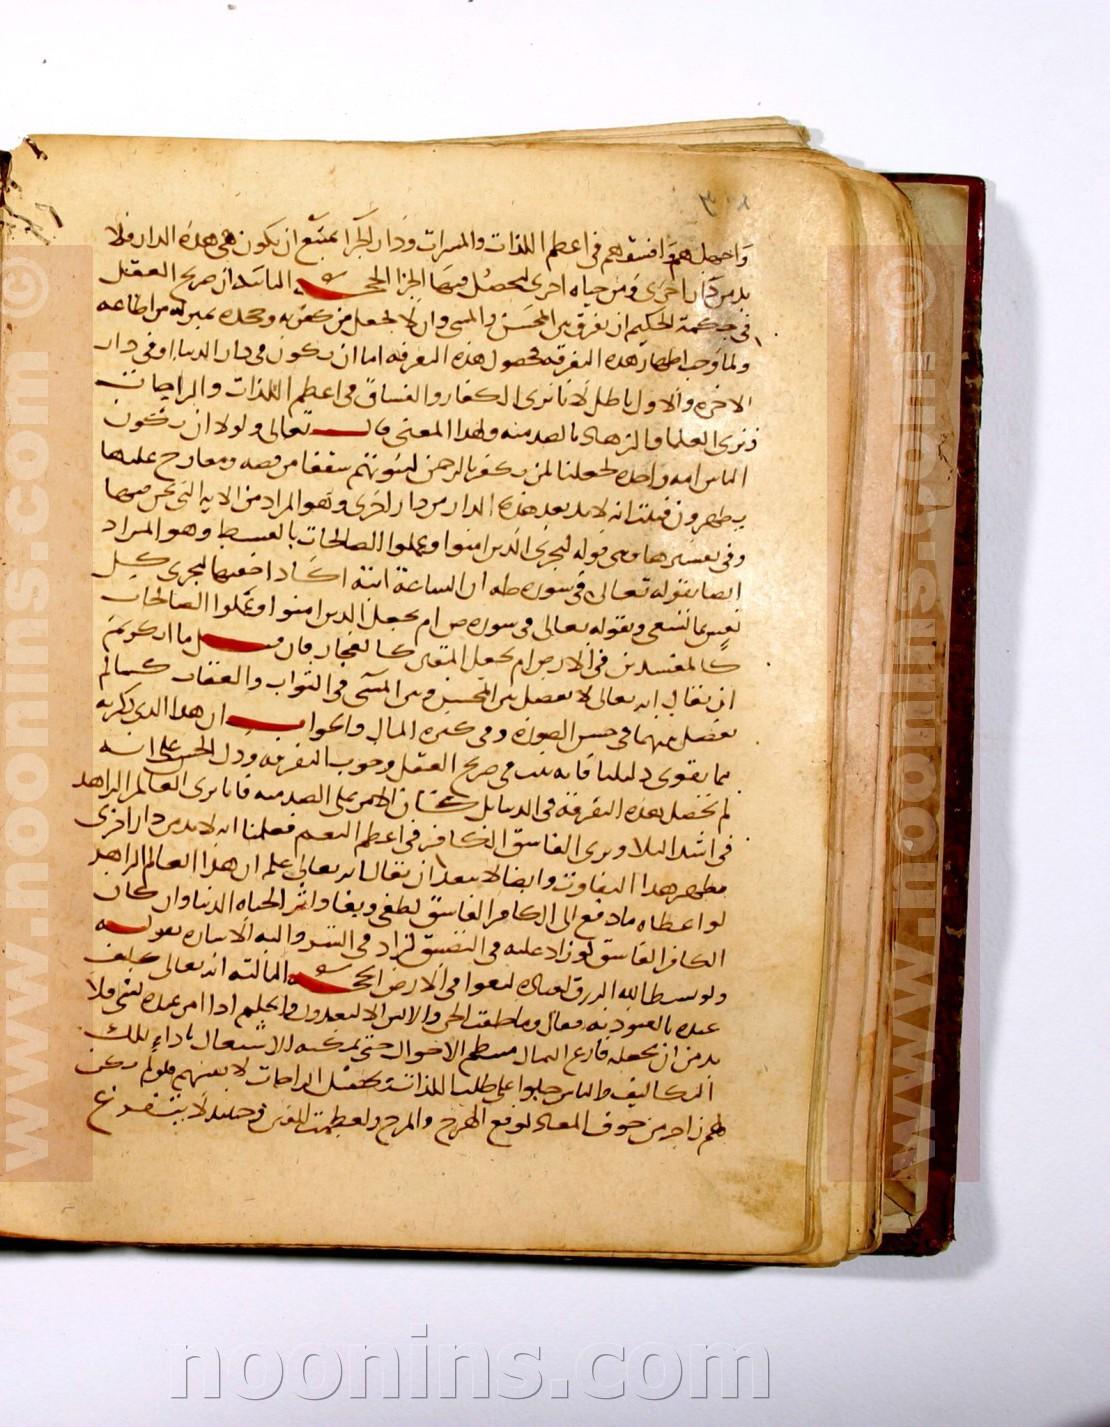 واجهلهم وافسقهم في اعظم اللذات والمسرات ودار الجزا يمتنع ان يكون هي هذه الدار فلا
بد من دار اخرى ومن حياه اخرى ليحصل فيها الجزا الحجه الثانيه ان صريح العقل
في حكمة الحكيم ان يفرق بين المحسن والمسي وان لا يجعل من كفر به وجحده بمنزله من اطاعه
ولما وجب اظهار هذه التفرقه فحصول هذه التفرقه اما ان يكون في دار الدنيا او في دار
الاخره والاول باطل لانا نرى الكفار والفساق في اعظم اللذات والراحات
ونرى العلما والزهاد بالضد منه ولهذا المعنى قال تعالى ولولا ان يكون
الناس امه واحده لجعلنا لمن يكفر بالرحمن لبيوتهم سقفا من فضه ومعارج عليها
يظهرون فثبت انه لا بد بعد هذه الدار من دار اخرى وهو المراد من الايه التي نحن فيها
وفي تفسيرها وهي قوله ليجزى الذين امنوا وعملوا الصالحات بالقسط وهو المراد
ايضا بقوله تعالى في سوره طه ان الساعة اتية اكاد اخفيها لتجزى كل
نفس بما تسعى وبقوله تعالى في سوره ص ام نجعل الذين امنوا وعملوا الصالحات
كالمفسدين في الارض ام نجعل المتقين كالفجار فان قيل ما انكرتم
ان يقال انه تعالى لا يفصل بين المحسن وبين المسى في الثواب والعقاب كما لم
يفصل بينهما في حسن الصورة وفي كثره المال والجواب ان هذا الذي ذكرته
مما يقوى دليلنا فانه ثبت في صريح العقل وجوب التفرقه ودل الحس على انه
لم تحصل هذه التفرقة في الدنيا بل كان الامر على الضد منه فانا نرى العالم الزاهد
في اشد البلا ونرى الفاسق الكافر في اعظم النعم فعلمنا انه لا بد من دار اخرى
يظهر هذا التفاوت وايضا لا يبعد ان يقال انه تعالى علم ان هذا العالم الزاهد
لو اعطاه ما دفع الى الكافر الفاسق لطغى وبغا واثر الحياه الدنيا وان كان
الكافر الفاسق لو زاد عليه في التضيق لزاد في الشر واليه الاشاره بقوله
ولو بسط الله الرزق لعباده لبغوا في الارض الحجه الثالثه انه تعالى كلف
عبده بالعبوديه فقال وما خلقت الجن والانس الا ليعبدون والحكيم اذا امر عبده بشي فلا
بد من ان يجعله فارغ البال منتظم الاحوال حتى يمكنه الاشتغال باداء تلك
التكاليف والناس جبلوا على طلب اللذات وتحصيل الراحات لانفسهم فلو لم يكن
لهم زاجر من خوف المعاد لوقع الهرج والمرج ولعظمت الفتن وحينئذ لا يتفرغ
www.noonins.com ©
www.noonins.com ©
noonins.com